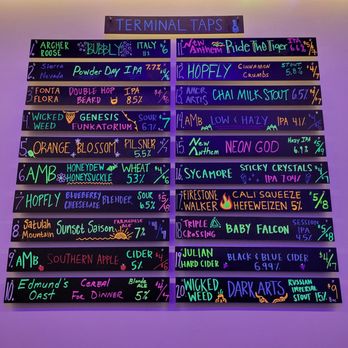 TERMINAL TAPS
1. ARCHER ROOSE "BUBBLY" ITALY
2. Sierra Nevada Powder Day IPA 7.7%
3. FONTA FLORA DOUBLE HOP BEARD IPA 8.5%
4. WICKED WEED GENESIS FUNKATORIUM SOUR
5. ORANGE BLOSSOM PILSNER 5.5%
6. AMB HONEYDEW HONEYSUCKLE WHEAT $4/6
7. HOPFLY BLUEBERRY CHEESECAKE BLENDER SOUR 6.5%
8. Satulah Mountain Sunset Saison FARMHOUSE ALE
9. AMB SOUTHERN APPLE CIDER 5%
10. Edmund's Oast CEREAL FOR DINNER Blonde ALE 5% $4/7
11. New Anthem Ride The Tiger IPA
12. HOPFLY CINNAMON CRUMBS STOUT 5.8%
13. AMCR ARTIS CHAI MILK STOUT
14. AMB LOW & HAZY IPA 4%
15. New Anthem NEON GOD HAZY IPA
16. SYCAMORE STICKY CRYSTALS IPA 7.0%
17. FIRESTONE WALKER CALI SQUEEZE HEFEWEIZEN 5% $5/8
18. TRIPLE CROSSING BABY FALCON SESSION IPA 4.5% $5/8
19. JULIAN HARD CIDER BLACK & BLUE CIDER 6.99% $4/7
20. WICKED WEED DARK ARTS RUSSIAN IMPERIAL STOUT 15%